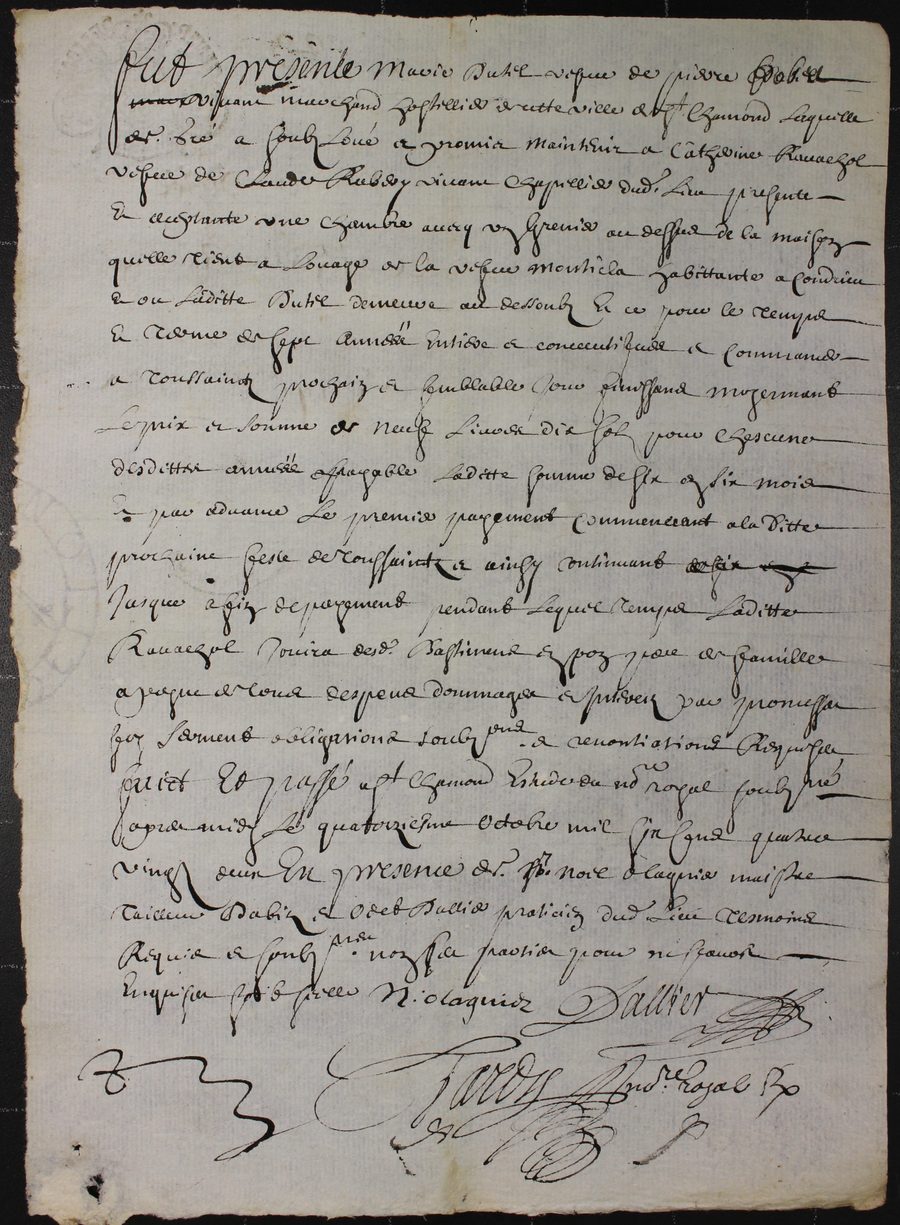 fut presente Marie Dutel vefve de pierre
vivant marchand hostellier de cette ville de st Chamond Laquelle
de gré a soubz Loué et promis maintenir a Catherine Ravachol
vefve de Claude vivant Chapellier dud. Lieu presente
Et acceptante une Chambre avecq un Grenier au dessus de la maison
quelle tient a Louage de la vefve habittante a Condrieu
Et ou Laditte Dutel demeure au dessoubz Et ce pour le temps
Et terme de sept Années Entiere et consecutifves et Commancer
a Toussainctz prochain et semblable Jour finissans moyennant
Le prix et somme de neuf Livres dix solz pour Chescune
desdittes années payable Laditte somme de six en six mois
Et par advance Le premier payement Commencent a la Ditte
prochaine feste de Toussainctz et ainsy Continuant
Jusque a fin de payement pendant Lequel temps Laditte
Ravachol Jouira desd. Bastimens en pere de famille
a peyne de tous despens dommages et Interestz par promesse
foy serment obligations soubzons et renontiations Requises
faict Et passé a st Chamond Estude du nore royal soubzné
apres midy Le quatorziesme Octobre mil six cens quatre
vingtz deux En presence de sr. Noel Olagnier maistre
Tailleur D'abitz et Odet Dallier praticien dud. Lieu tesmoins
Requis et soubz non les parties pour ne scavoir
Enquises
N. Olagnier Dallier
Tardy nore Royal